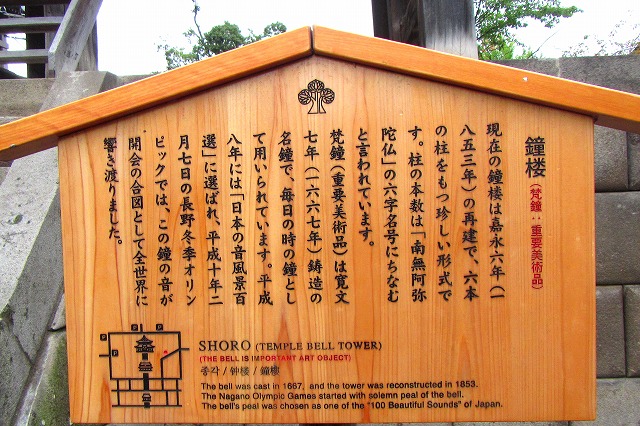 鐘楼(梵鐘:重要美術品)
現在の鐘楼は嘉永六年(一
八五三年)の再建で、六本
の柱をもつ珍しい形式で
す。柱の本数は「南無阿弥
陀仏」の六字名号にちなむ
と言われています。
梵鐘(重要美術品)は寛文
七年(一六六七年)鋳造の
名鐘で、毎日の時の鐘とし
て用いられています。平成
八年には「日本の音風景百
選」に選ばれ、平成十年二
月七日の長野冬季オリン
ピックでは、この鐘の音が
開会の合図として全世界に
響き渡りました。
SHORO (TEMPLE BELL TOWER)
(THE BELL IS IMPORTANT ART OBJECT)
종각 / 钟楼 / 鐘樓
The bell was cast in 1667, and the tower was reconstructed in 1853.
The Nagano Olympic Games started with solemn peal of the bell.
The bell's peal was chosen as one of the "100 Beautiful Sounds" of Japan.
P
P
P